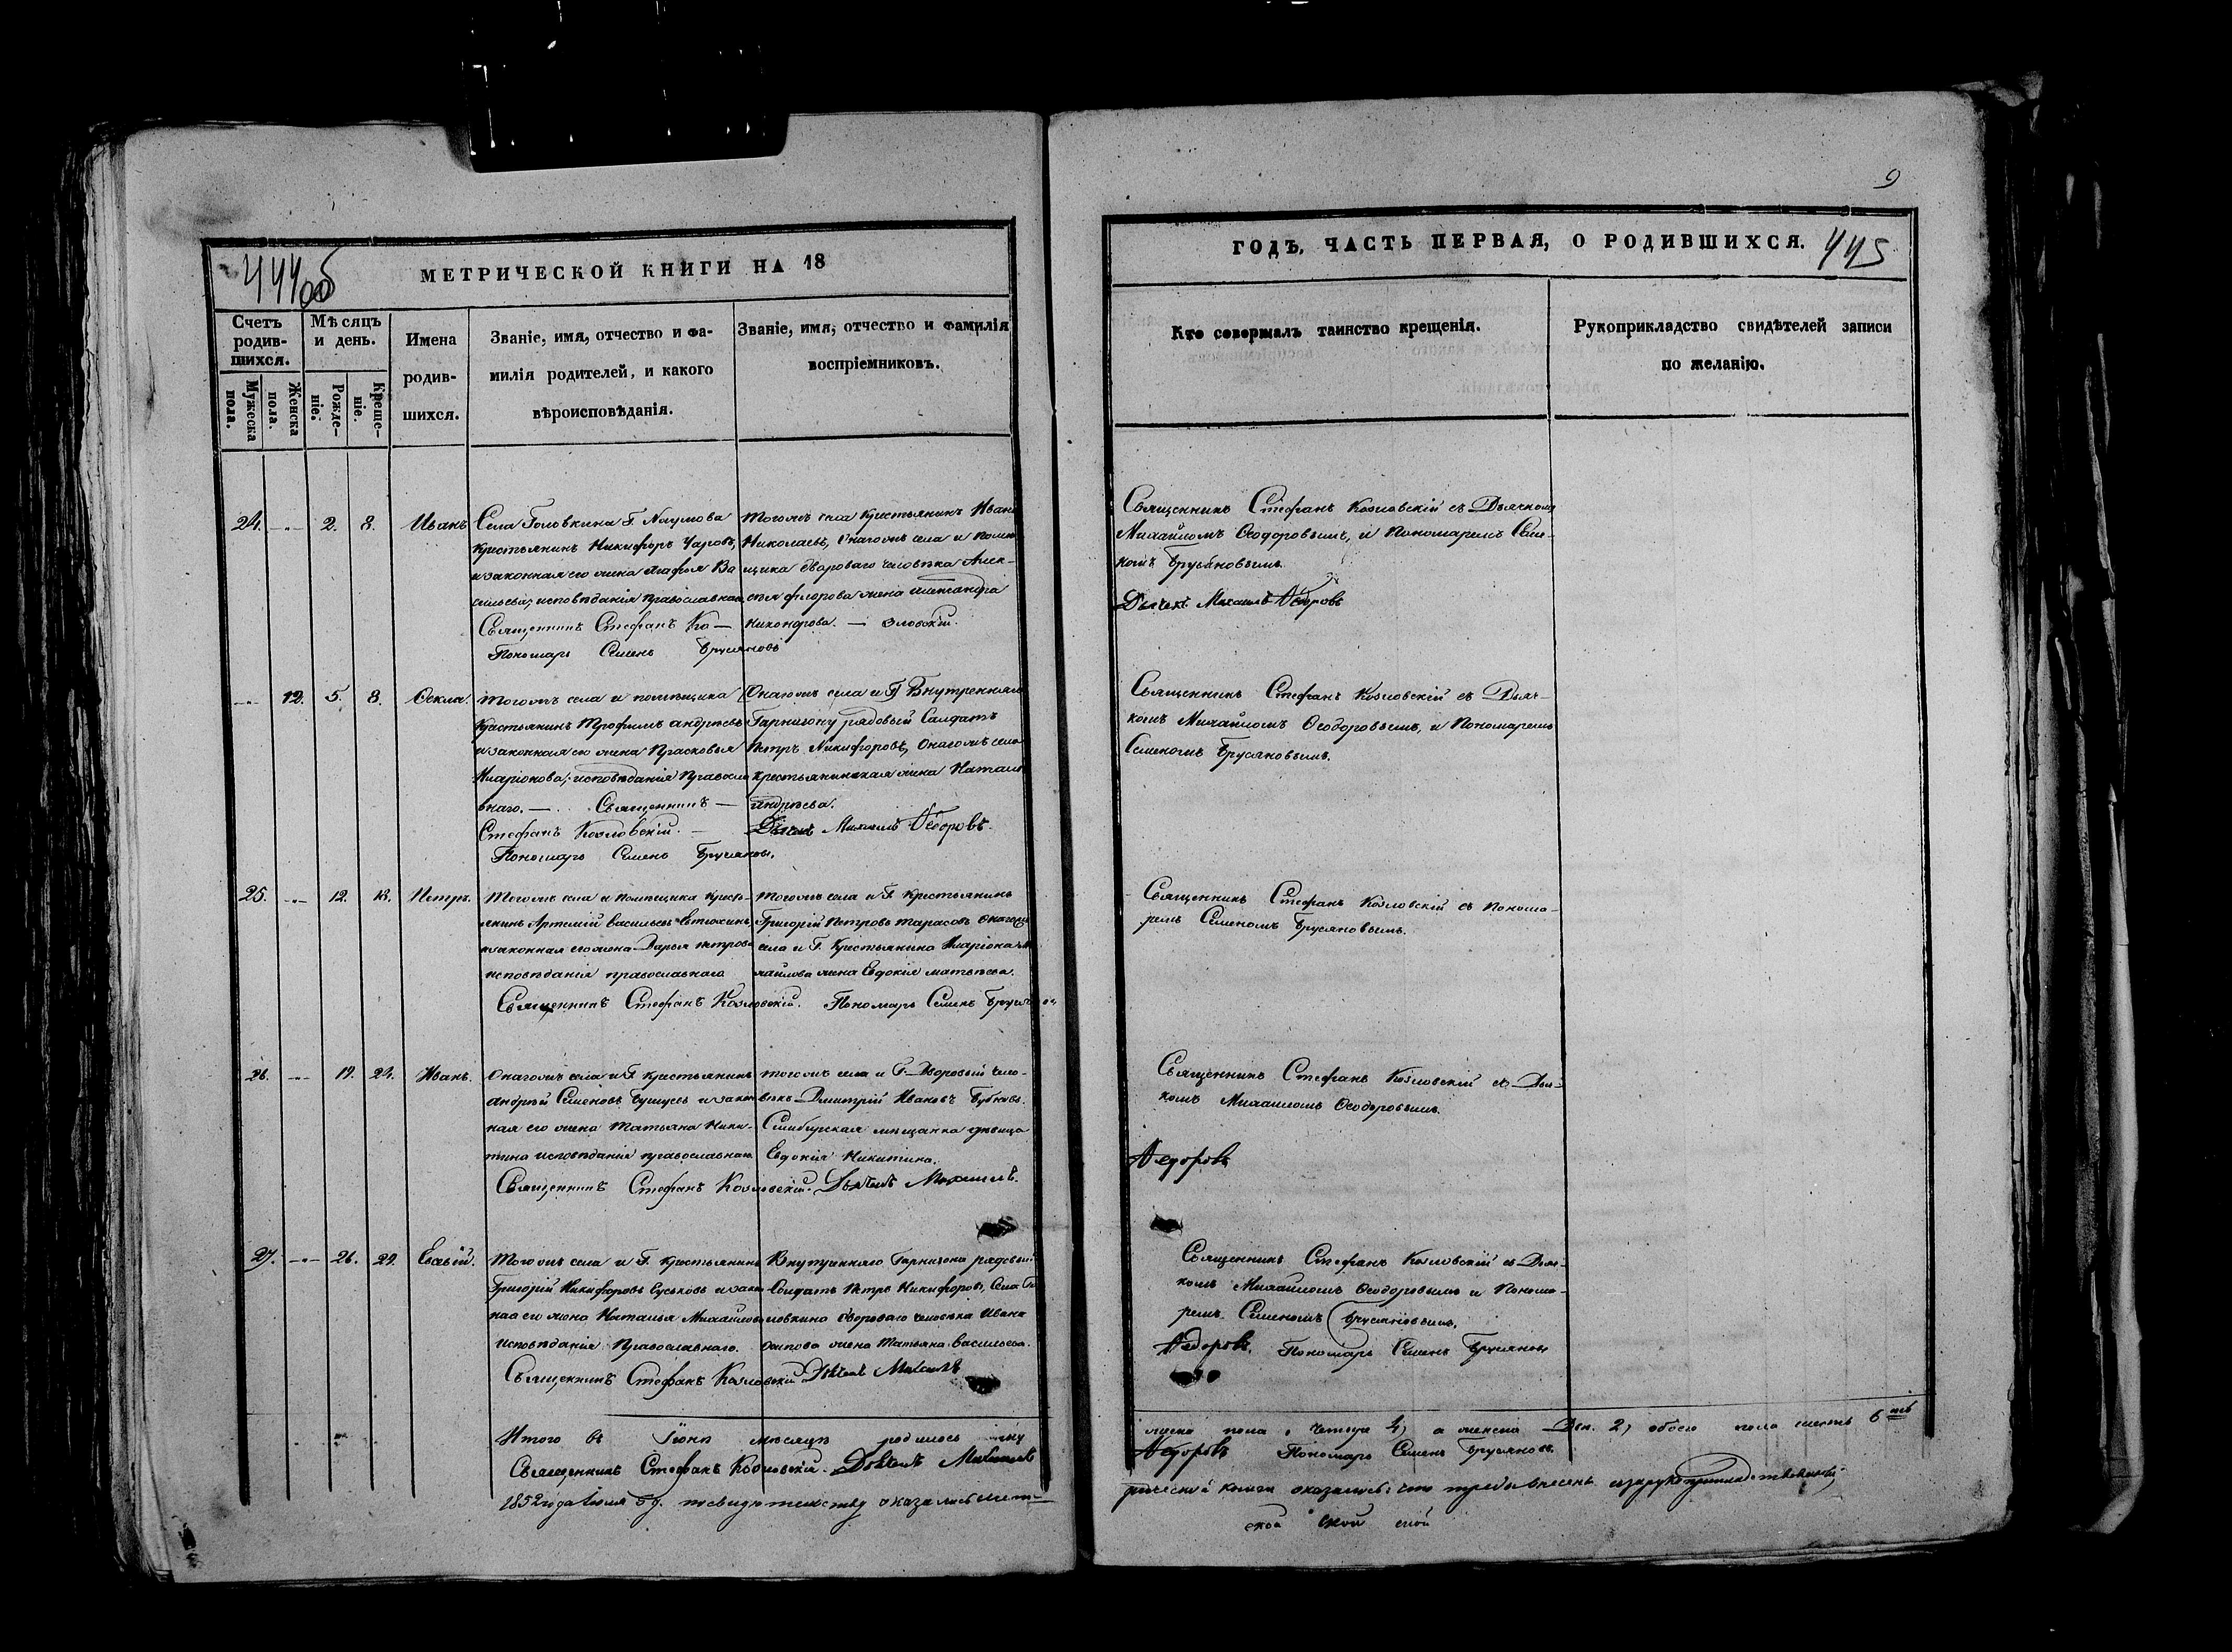 9
444об
МЕТРИЧЕСКОЙ КНИГИ НА 18
Счетъ родив-шихся.
Мѣсяцъ и день.
Мужеска пола.
Женска пола.
Рожде-ніе.
Креще-ніе.
Имена
родив-
шихся.
Званіе, имя, отчество и фа-
милія родителей, и какого
вѣроисповѣданія.
Званіе, имя, отчество и фамилія
воспріемниковъ.
24. 2. 8. Иванъ
Села Головкина Г. Наумова
крестьянинъ Никифоръ Уаровъ,
и законная его жена Агафья Ва
сильева; исповѣданія православнаго
Священникъ Стефанъ Ко—
Пономарь Семенъ Брусяновъ
Тогожъ села крестьянинъ Иванъ
Николаевъ, Онагожъ села и помѣ
щика двороваго человѣка Алек-
сѣя Флорова жена Александра
Никонорова. — зловскій.
12. 5. 8. Ѳекла.
Тогожъ села и помѣщика
крестьянинъ Трофимъ Андреевъ
и законная его жена Прасковья
Иларіонова; исповѣданія Правосла
внаго. — Священникъ —
Стефанъ Козловскій. —
Пономарь Семенъ Брусяновъ.
Онагожъ села и Г Внутренняго
Гарнизону рядовый Салдатъ
Петръ Никифоровъ, Онагожъ села
крестьянинская жена Наталья
Андреева.
Дьячекъ Михаилъ Ѳедоровъ.
25. 12. 13. Петръ.
Тогожъ села и помѣщика кресть-
янинъ Артемій Васильевъ Евтюхинъ,
и законная его жена Дарья Петрова
исповѣданія православнаго
Священникъ Стефанъ Козловскій. Пономарь Семенъ Брусяновъ
Тогожъ села и Г. крестьянинъ
Григорій Петровъ Тарасовъ Онагожъ
села и Г. крестьянина Иларіона Ми
хайлова жена Евдокія Матвѣева.
26. 19. 24. Иванъ.
Онагожъ села и Г крестьянинъ
Андрей Семеновъ и закон
ная его жена Татьяна Ники-
тина исповѣданія православнаго
Священникъ Стефанъ Козловскій. Дьячекъ Михаилъ.
тогожъ села и Г. Дворовый чело-
вѣкъ Дмитрій Ивановъ Бубновъ.
Симбирская мѣщанка дѣвица
Евдокія Никитина.
27. 26. 29. Евсѣвій.
Тогожъ села и Г. крестьянинъ
Григорій Никифоровъ Еуськовъ и закон
ная его жена Наталья Михайлова
исповѣданія Православнаго.
Священникъ Стефанъ Козловскій Дьячекъ Михаилъ
Внутренняго Гарнизона рядовый
Солдатъ Петръ Никифоровъ, Села Го
ловкина двороваго человѣка Ивана
Осипова жена Татьяна Васильева.
Итого въ Іюнѣ мѣсяцѣ родилось му
Священникъ Стефанъ Козловскій. Дьячекъ Михаилъ
1852 года Іюля 5 д. по свидѣтельству оказалось мет-
ГОДЪ, ЧАСТЬ ПЕРВАЯ, О РОДИВШИХСЯ.
445
Кто совершалъ таинство крещенія.
Рукоприкладство свидѣтелей записи
по желанію.
Священникъ Стефанъ Козловскій съ Дьячкомъ
Михаиломъ Ѳеодоровымъ, и Пономаремъ Семе-
номъ Брусяновымъ.
Дьячекъ Михаилъ Ѳедоровъ
Священникъ Стефанъ Козловскій съ Дьяч-
комъ Михаиломъ Ѳеодоровымъ, и Пономаремъ
Семеномъ Брусяновымъ.
Священникъ Стефанъ Козловскій съ Понома-
ремъ Семеномъ Брусяновымъ.
Священникъ Стефанъ Козловскій съ Дьяч-
комъ Михаиломъ Ѳеодоровымъ.
Ѳедоровъ
Священникъ Стефанъ Козловскій съ Дьяч-
комъ Михаиломъ Ѳеодоровымъ и Понома-
ремъ Семеномъ Брусяновымъ.
Ѳедоровъ. Пономарь Семенъ Брусяновъ
жеска пола четыре 4, а женска Две. 2, обоего пола шесть 6ть
Ѳедоровъ Пономарь Семенъ Брусяновъ.
рической книги оказалось: что